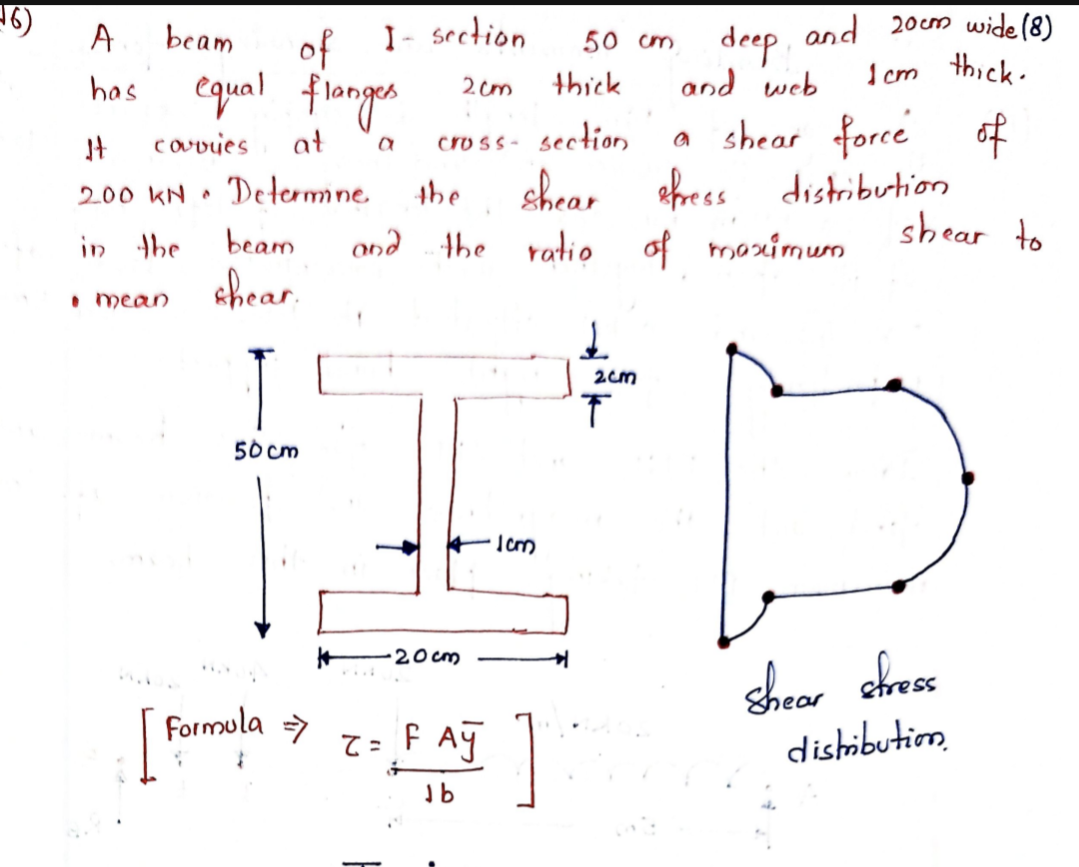 16)
A beam of I-section 50 cm deep, and 20cm wide (8)
has equal flanges 2cm thick and web 1cm thick.
It carries at a cross-section a shear force of
200 KN. Determine the shear stress distribution
in the beam and the ratio of maximum shear to
mean shear.
2cm
50 cm
1cm
20cm
shear stress
distribution.
[ Formula ⇒ τ = F Aȳ / Ib ]